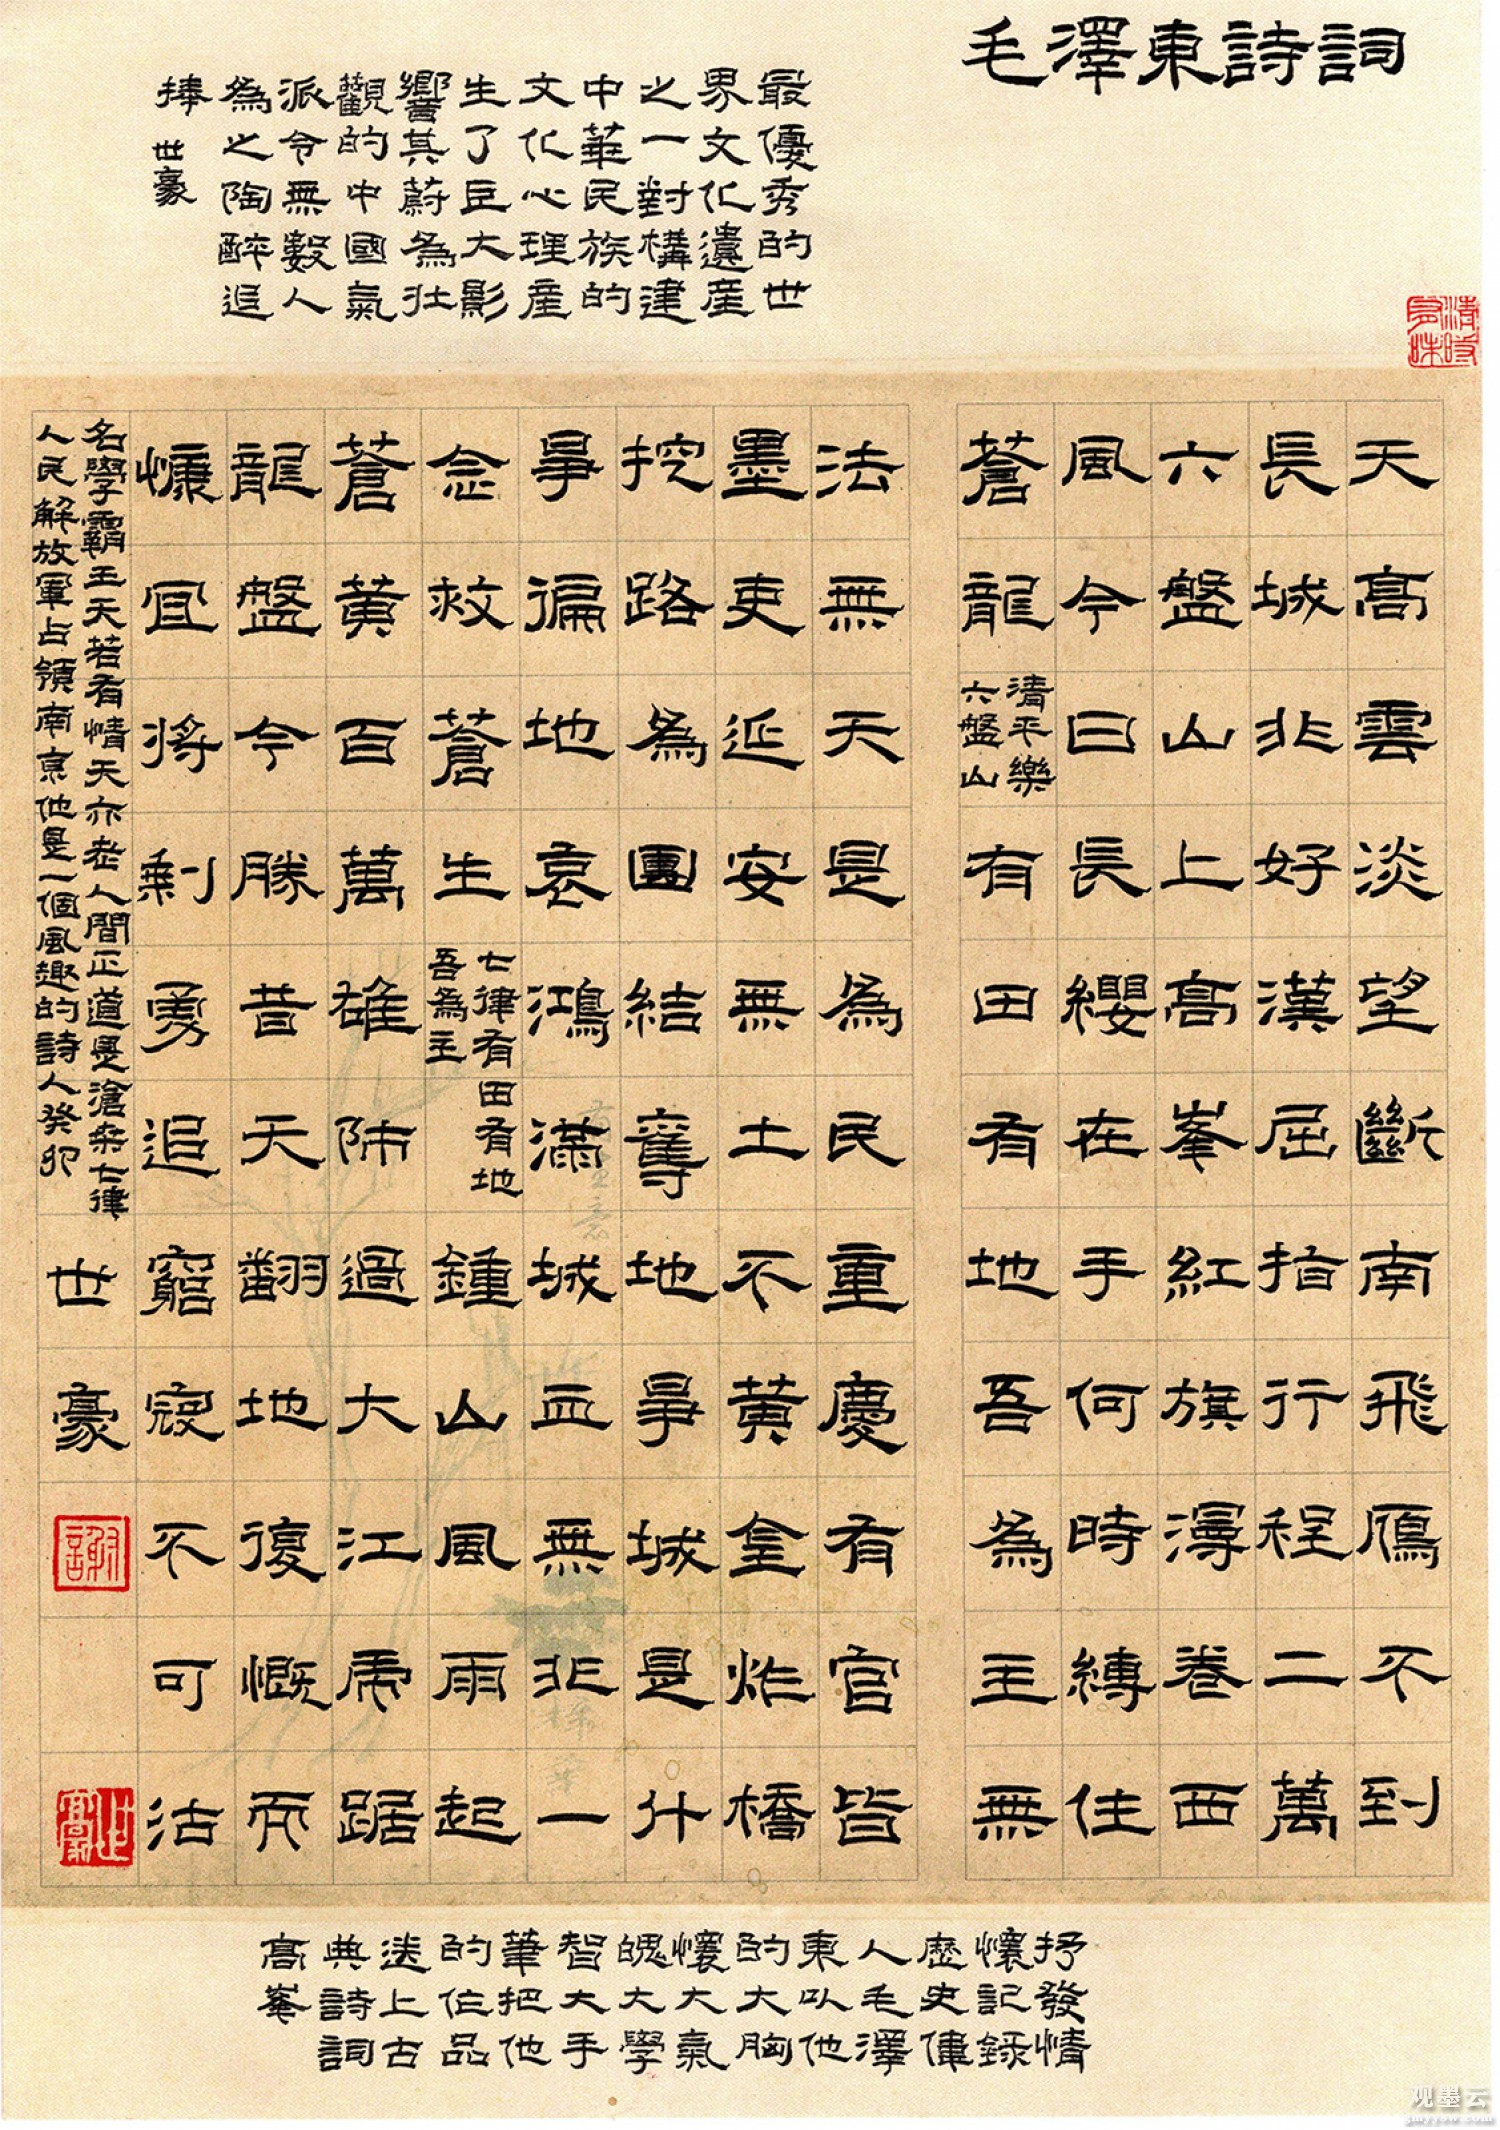 毛澤東詩詞
最優秀的世
界文化遺産
之一對構建
中華民族的
文化心理産
生了巨大影
響其蔚為壮
觀的中國氣
派令無數人
為之陶醉追
捧 世豪
清時有味
天高雲淡望斷南飛鴈不到
長城非好漢屈指行程二萬
六盤山上高峯紅旗漫卷西
風今日長纓在手何時縛住
蒼龍 清平樂六盤山 有田有地吾為主無
法無天是為民重慶有官皆
墨吏延安無土不黃金炸橋
挖路為團結奪地爭城是什
爭徧地哀鴻滿城血無非一
念救蒼生 七律有田有地吾為主 鍾山風雨起
蒼黃百萬雄師過大江虎踞
龍盤今勝昔天翻地復慨而
慷宜將剩勇追窮寇不可沽
名學霸王天若有情天亦老人間正道是滄桑七律
人民解放軍占領南京他是一個風趣的詩人癸卯
世豪
謝
世豪
抒發情
懷記錄
歷史偉
人毛澤
東以他
的大胸
懷大氣
魄大學
智大手
筆把他
的作品
送上古
典詩詞
高峯
观墨云